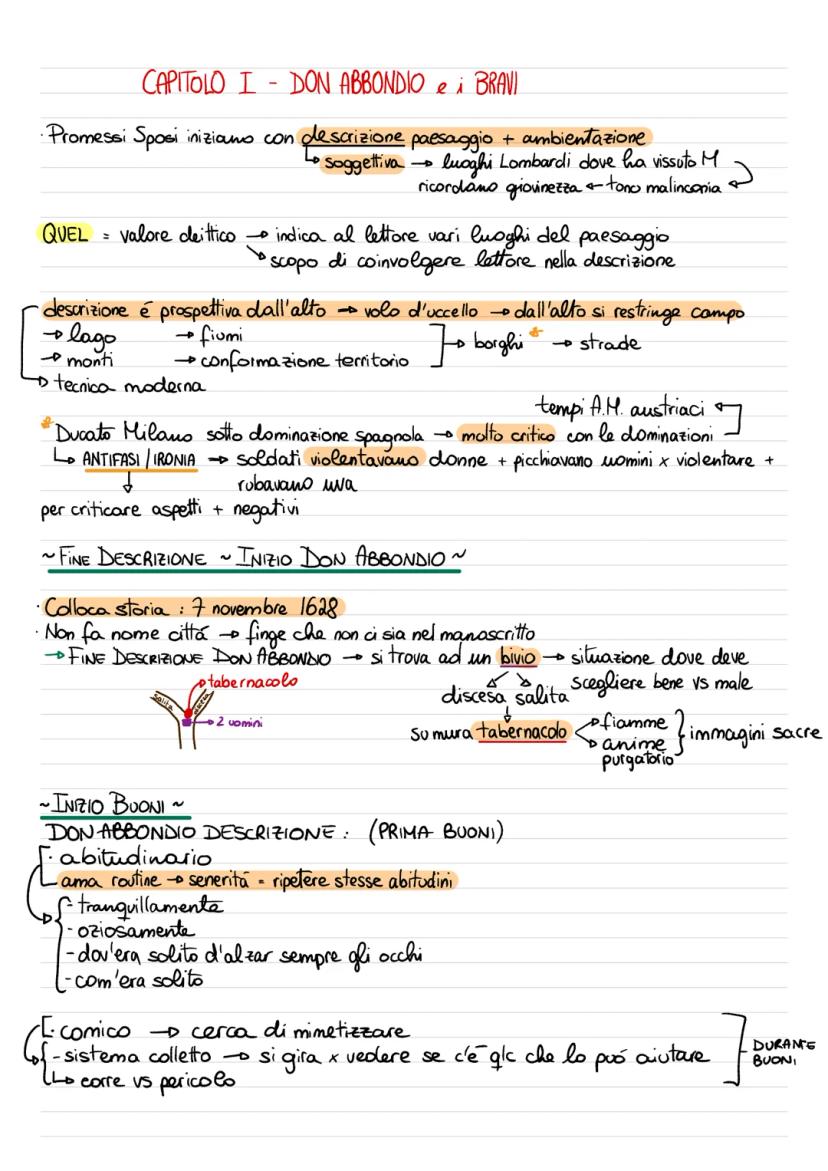 CAPITOLO I - DON ABBONDIO e i BRAVI
· Promessi Sposi iniziano con descrizione paesaggio + ambientazione
↳ soggettiva → luoghi Lombardi dove ha vissuto M
ricordano giovinezza ← tono malinconia ←
QUEL = valore deittico → indica al lettore vari luoghi del paesaggio
↘ scopo di coinvolgere lettore nella descrizione
descrizione é prospettiva dall'alto → volo d'uccello → dall'alto si restringe campo
→ lago → fiumi
→ monti → conformazione territorio ] → borghi * → strade
→ tecnica moderna
tempi A.M. austriaci ←
* Ducato Milano sotto dominazione spagnola → molto critico con le dominazioni
↳ ANTIFASI / IRONIA → soldati violentavano donne + picchiavano uomini x violentare +
rubavano uva
↓
per criticare aspetti + negativi
~ FINE DESCRIZIONE ~ INIZIO DON ABBONDIO ~
· Colloca storia : 7 novembre 1628
· Non fa nome cittá → finge che non ci sia nel manoscritto
→ FINE DESCRIZIONE DON ABBONDIO → si trova ad un bivio → situazione dove deve
scegliere bene vs male
discesa salita
tabernacolo
salita
discesa
→ 2 uomini
Su mura tabernacolo → fiamme
→ anime purgatorio } immagini sacre
~ INIZIO BUONI ~
DON ABBONDIO DESCRIZIONE : (PRIMA BUONI)
· abitudinario
ama routine → seneritá = ripetere stesse abitudini
- tranquillamente
- oziosamente
- dov'era solito d'alzar sempre gli occhi
- com'era solito
· comico → cerca di mimetizzare
- sistema colletto → si gira x vedere se c'é qlc che lo puó aiutare
↳ corre vs pericolo
DURANTE
BUONI